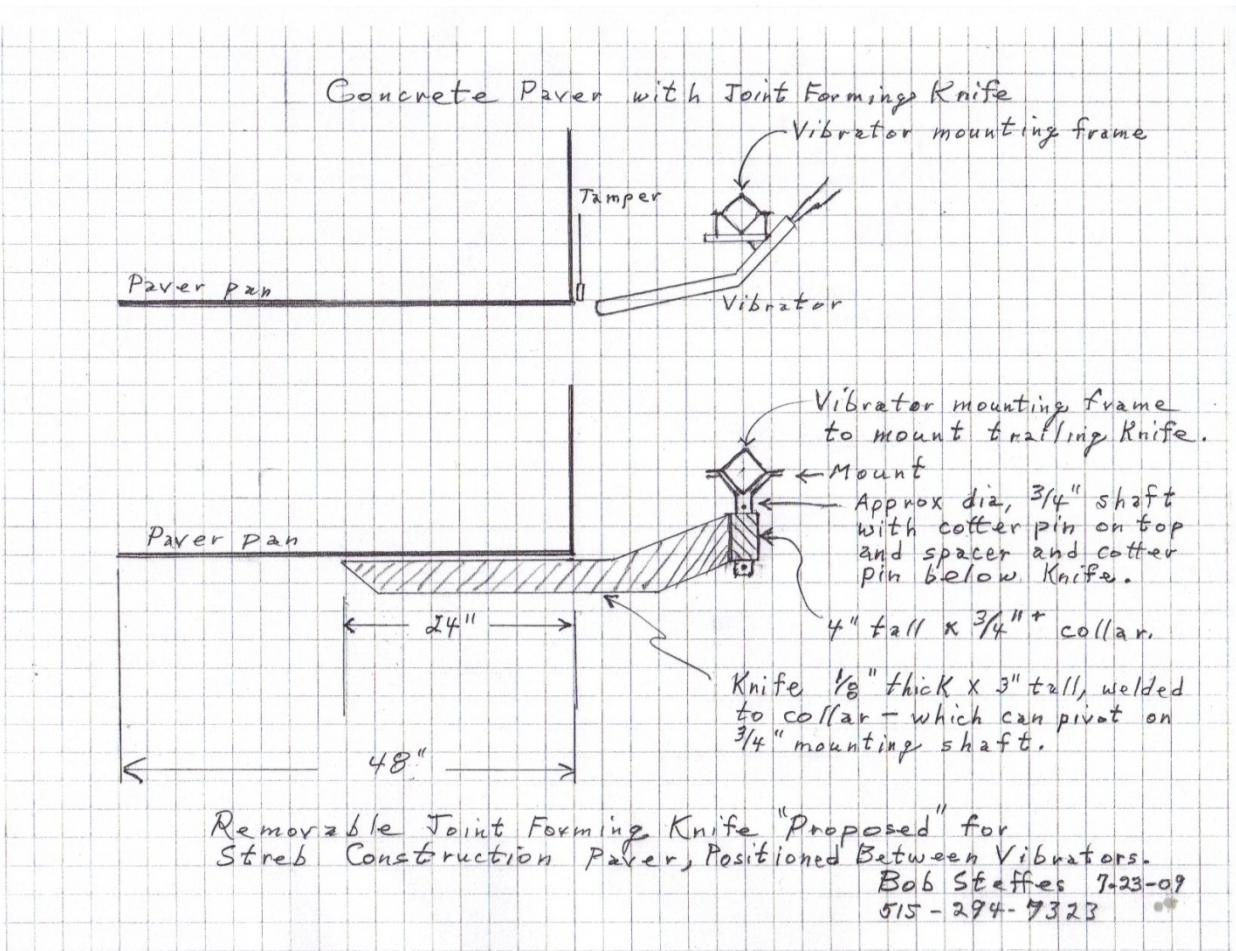 Concrete Paver with Joint Forming Knife
Vibrator mounting frame
Tamper
Paver pan
Vibrator
Vibrator mounting frame
to mount trailing Knife.
Mount
Approx dia, 3/4" shaft
with cotter pin on top
and spacer and cotter
pin below Knife.
Paver pan
4" tall x 3/4"+ collar.
24"
Knife 1/8" thick x 3" tall, welded
to collar - which can pivot on
3/4" mounting shaft.
48"
Removable Joint Forming Knife "Proposed" for
Streb Construction Paver, Positioned Between Vibrators.
Bob Steffes 7-23-09
515-294-7323